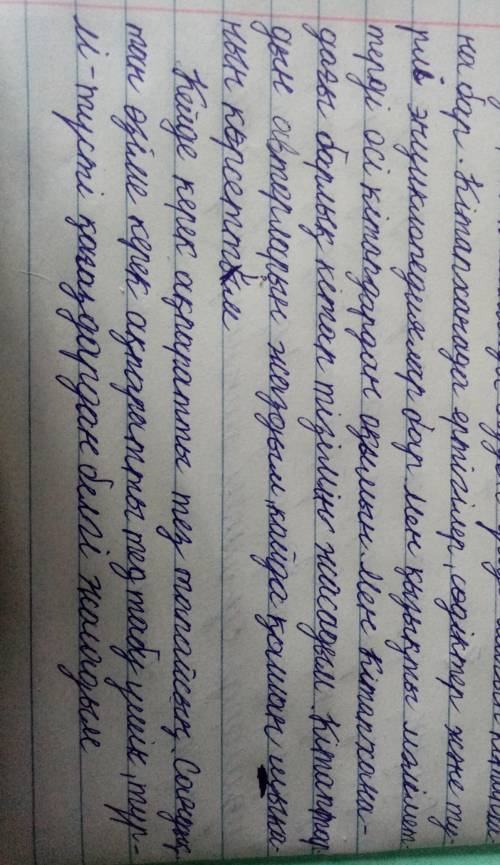 на бар. Кітапханада ертігілер, сөздіктер және тү-
рлі энциклопедиялар бар мен қызықты мәлімет-
терді осі кітапдардан оқимын Мен Кітапхана-
дағы барлық кітап тізімін жасадым. Кітаптар-
дың авторларын жаздым, қайда қалған
нын көрсеттім
Кейде керек ақпаратты тез таппайсың. Сондық
тан өзіме керек ақпаратты тез табу үшін, түр-
лі-түсті қағаздардан белгі жасадым